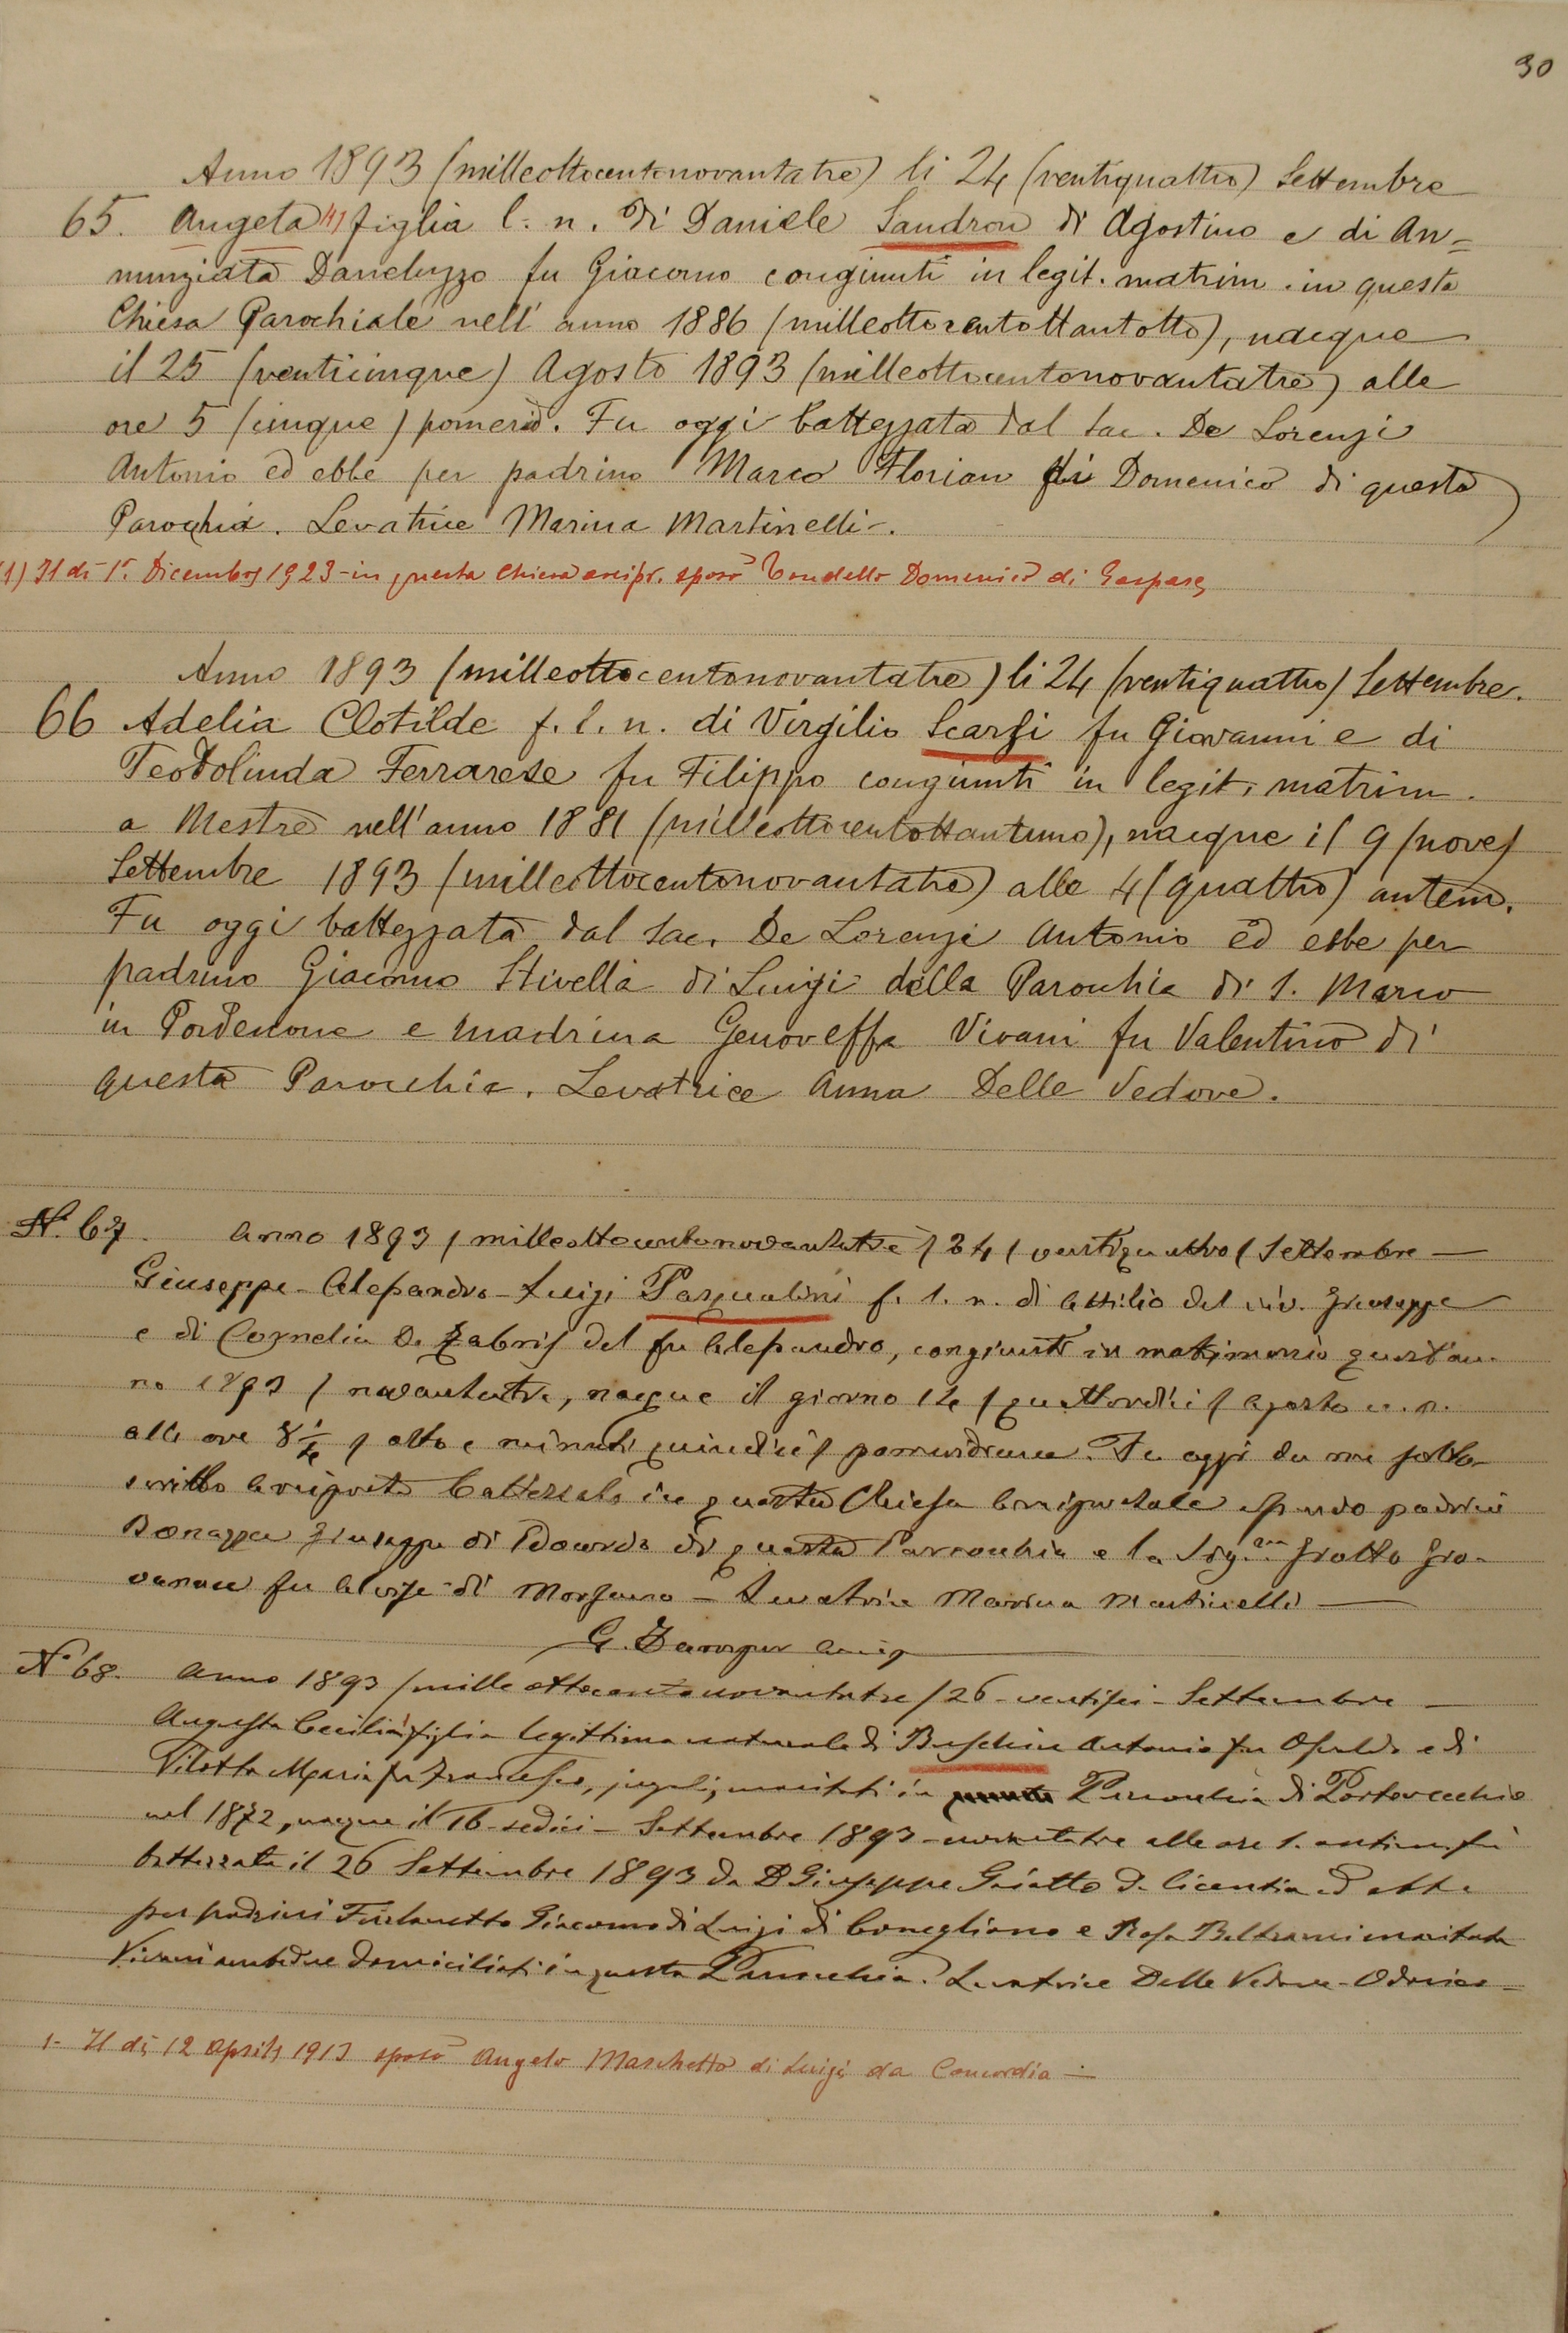 30
Anno 1893 (milleottocentonovantatre) li 24 (ventiquattro) Settembre
65. Angela (1) figlia l. n. di Daniele Sandron di Agostino e di An=
nunziata Daneluzzo fu Giacomo congiunti in legit. matrim. in questa
Chiesa Parochiale nell' anno 1886 (milleottocentottantotto), nacque
il 25 (venticinque) Agosto 1893 (milleottocentonovantatre) alle
ore 5 (cinque) pomerid. Fu oggi battezzata dal Sac. De Lorenzi
Antonio ed ebbe per padrino Marco Florian di Domenico di questa
Parochia. Levatrice Marina Martinelli.
(1) Il dì 1º Dicembre 1923 - in questa Chiesa arcipr. sposò Domenico di Gaspare
Anno 1893 (milleottocentonovantatre) li 24 (ventiquattro) Settembre.
66 Adelia Clotilde f. l. n. di Virgilio Scarfi fu Giovanni e di
Teodolinda Ferrarese fu Filippo congiunti in legit. matrim.
a Mestre nell' anno 1881 (milleottocentottantuno), nacque il 9 (nove)
Settembre 1893 (milleottocentonovantatre) alle 4 (quattro) antem.
Fu oggi battezzata dal Sac. De Lorenzi Antonio ed ebbe per
padrino Giacomo Stivella di Luigi della Parochia di S. Marco
in Pordenone e madrina Genoveffa Vivani fu Valentino di
questa Parocchia. Levatrice Anna Delle Vedove.
N. 67. Anno 1893 (milleottocentonovantatre) 24 (ventiquattro) Settembre —
Giuseppe - Alessandro - Luigi Pasqualini f. l. n. di Attilio del viv. Giuseppe
e di Cornelia De Fabris del fu Alessandro, congiunti in matrimonio quest'an-
no 1893 (novantatre, nacque il giorno 14 (quattordici) Agosto a. c.
alle ore 8 1/4 (otto e minuti quindici) pomeridiane. Fu oggi da me sotto-
scritto Arciprete battezzato in questa Chiesa Arcipretale essendo padrini
Bonazza Giuseppe di Edoardo di questa Parrocchia e la Sig.ra Grotto Gio-
vanna fu Alvise di Morsano - Levatrice Marina Martinelli —
G. Arcip
Nº 68. Anno 1893 (mille ottocentonovantatre / 26 - ventisei - Settembre —
Augusta Cecilia¹ figlia legittima naturale di Antonio fu Osvaldo e di
Pilotto Maria fu Francesco, jugali, maritati in Parrochia di Portovecchio
nel 1872, nacque il 16 - sedici - Settembre 1893 - novantatre alle ore 1. antim. fu
battezzata il 26 Settembre 1893 da D Giuseppe Griatto de licentia ed ebbe
per padrini Furlanetto Giacomo di Luigi di Conegliano e Rosa Beltrami maritata
Vivani ambedue domiciliati in questa Parrochia. Levatrice Delle Vedove - Odorico
1 - Il dì 12 Aprile 1913 sposò Angelo Marchetto di Luigi da Concordia —